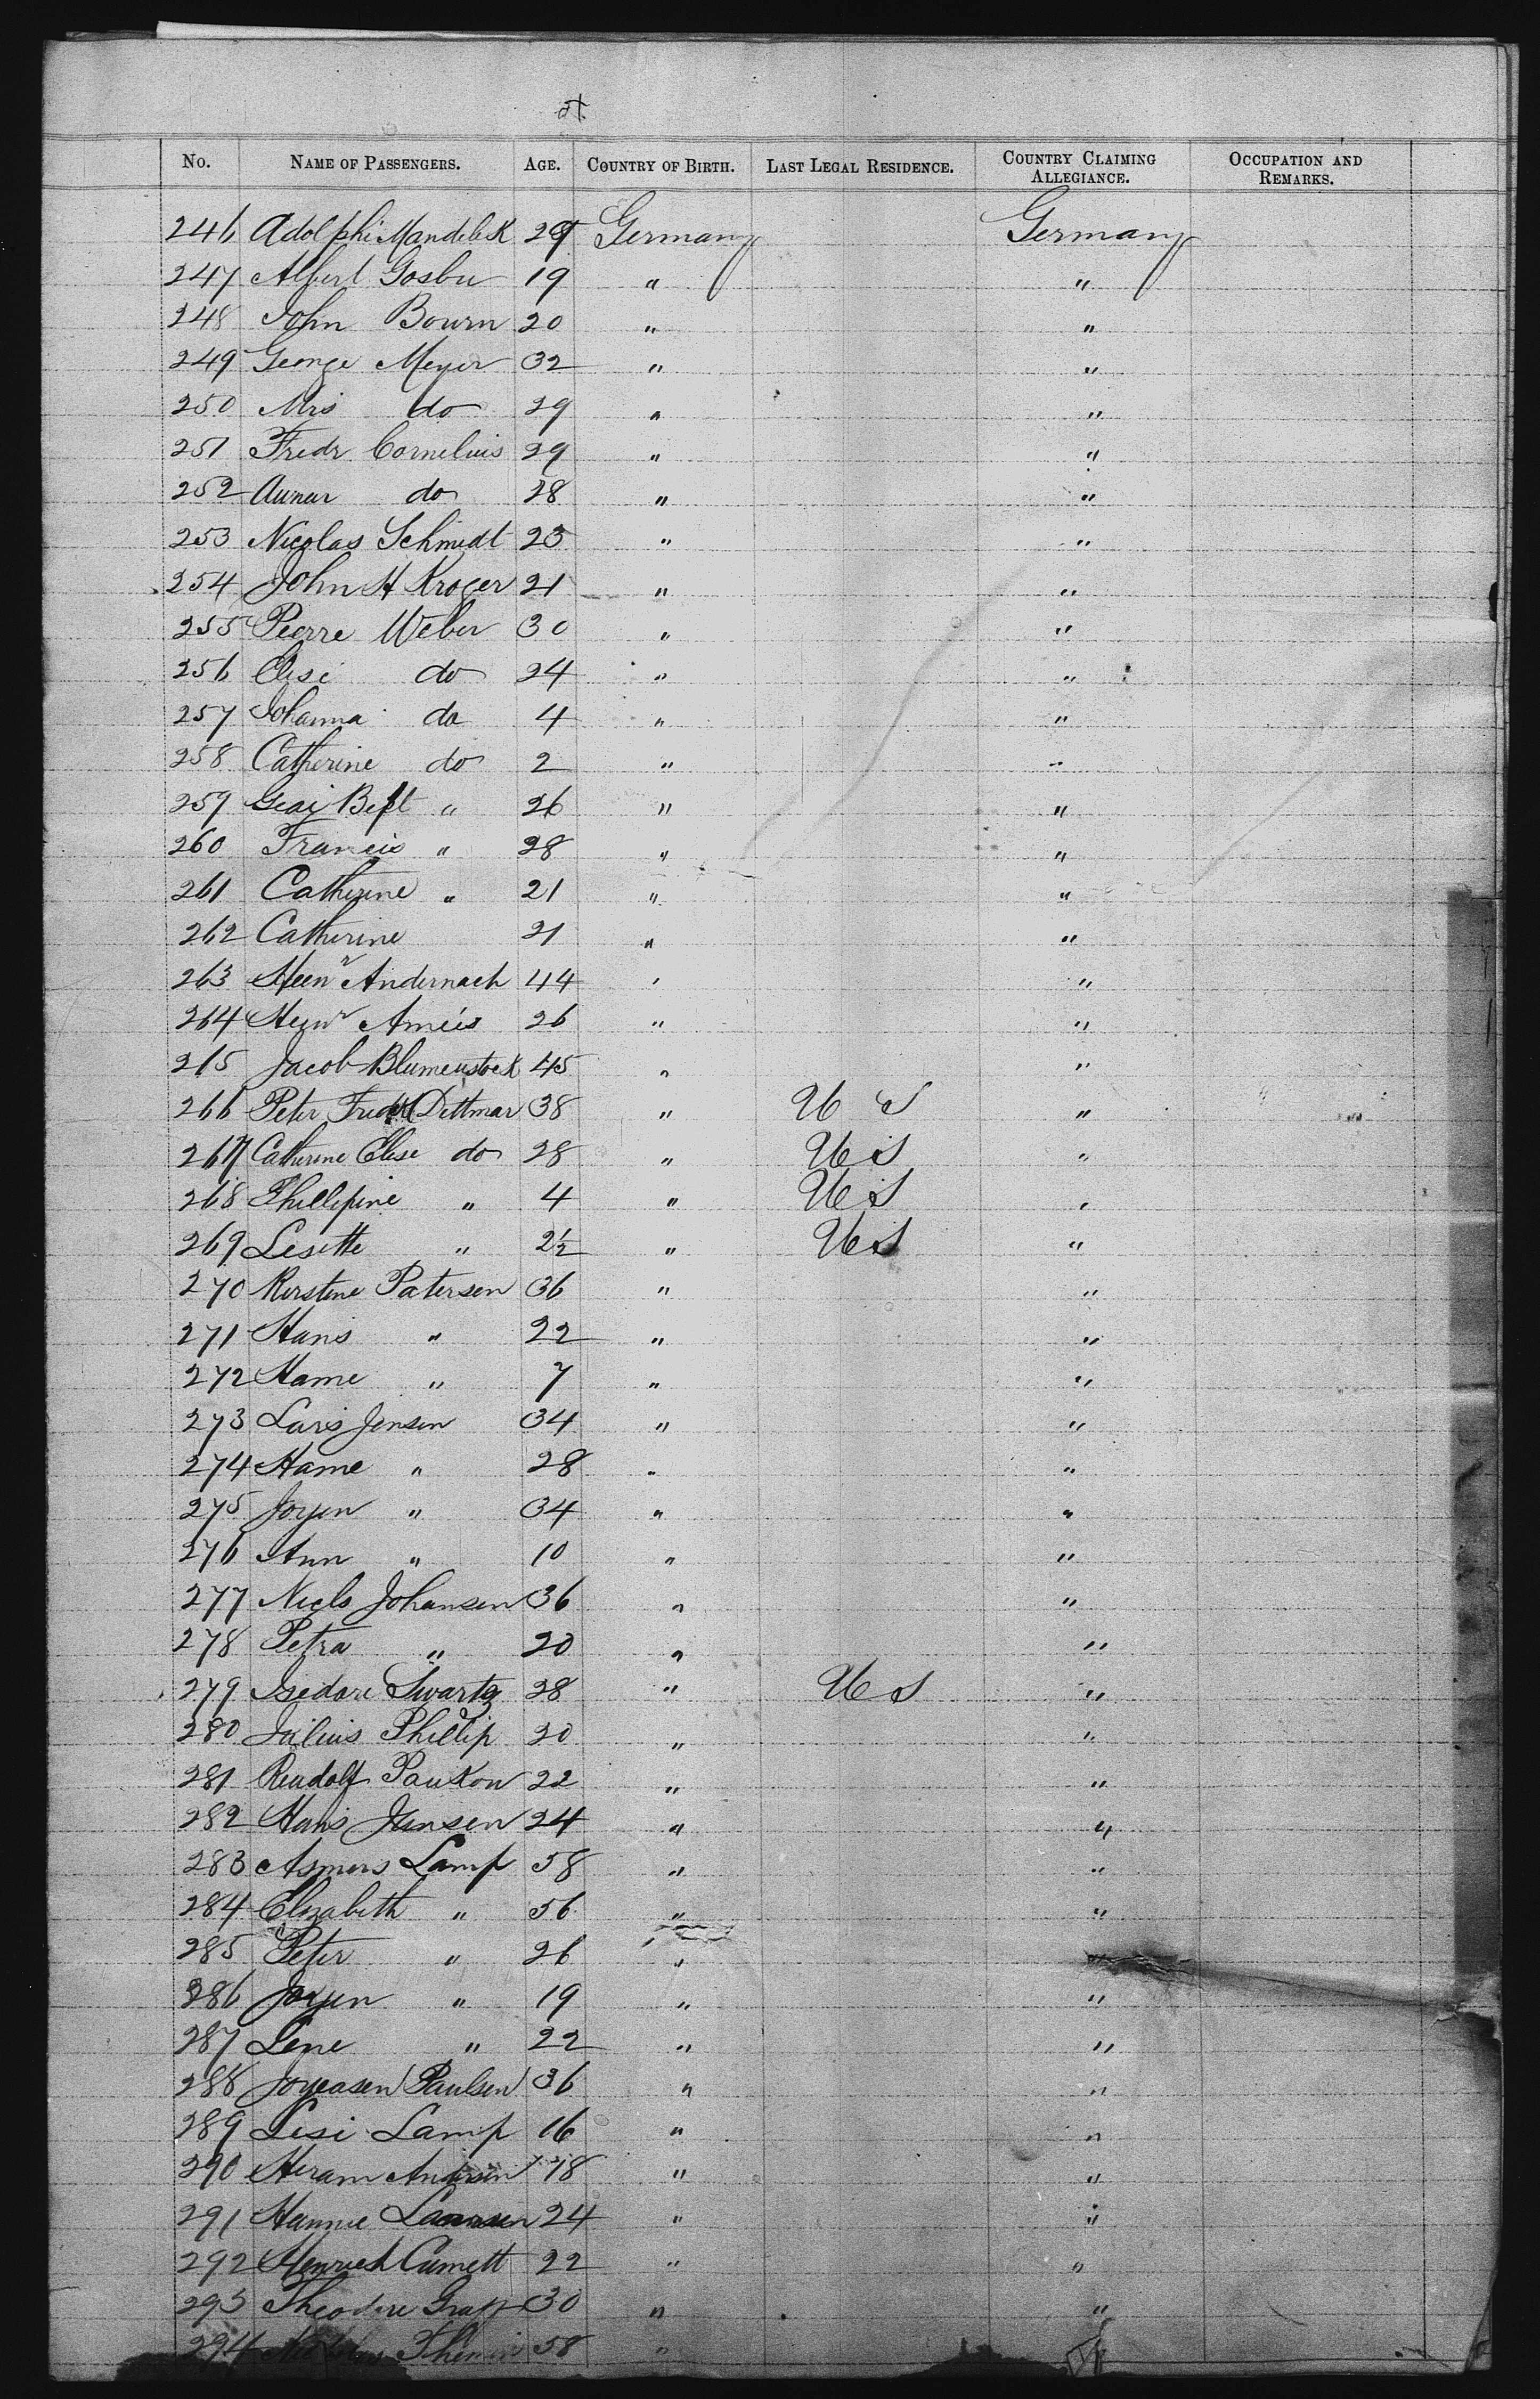 No. NAME OF PASSENGERS. AGE. COUNTRY OF BIRTH. LAST LEGAL RESIDENCE. COUNTRY CLAIMING ALLEGIANCE. OCCUPATION AND REMARKS.
246 Adolphi Mandelik 29 Germany Germany
247 Albert Gosbu 19 " "
248 John Bourn 20 " "
249 George Meyer 32 " "
250 Mrs do 29 " "
251 Fredr Cornelius 29 " "
252 do 28 " "
253 Nicolas Schmidt 23 " "
254 John H Kroger 21 " "
255 Pierre Weber 30 " "
256 Elise do 24 " "
257 Johanna do 4 " "
258 Catherine do 2 " "
259 " 26 " "
260 Francis " 28 " "
261 Catherine " 21 " "
262 Catherine 21 " "
263 Heenr Andernach 44 " "
264 Ameis 26 " "
215 Jacob Blumenstock 45 " "
266 Peter Fredk Dittmar 38 " U S "
267 Catherine Elise do 28 " U S "
268 Phillipine " 4 " U S "
269 Lisette " 2½ " U S "
270 Kerstine Patersen 36 " "
271 Hans " 22 " "
272 Hame " 7 " "
273 Lars Jensen 34 " "
274 Hame " 28 " "
275 Joryen " 34 " "
276 Ann " 10 " "
277 Niels Johansen 36 " "
278 Petra " 20 " "
279 Isedore Swartz 28 " U S "
280 Julius Phillip 20 " "
281 Reudolf Paukow 22 " "
282 Hans Jansen 24 " "
283 Asmers Lamp 58 " "
284 Elizabeth " 56 " "
285 Peter " 26 " "
286 Joryen " 19 " "
287 Lene " 22 " "
288 Paulsen 36 " "
289 Lesi Lamp 16 " "
290 Hiram Andersen 18 " "
291 Hannie 24 " "
292 Henrich Cumett 22 " "
293 Theodore 30 " "
294 58 "